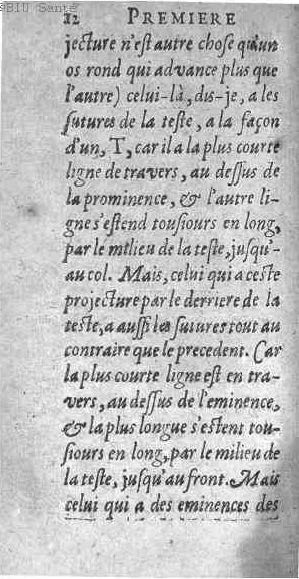 ©BIU Santé
12 PREMIERE
jecture n'est autre chose qu'un
os rond qui advance plus que
l'autre) celui-là, dis-je, a les
sutures de la teste, a la façon
d'un, T, car il a la plus courte
ligne de travers, au dessus de
la prominence, & l'autre li-
gne s'estend tousiours en long,
par le milieu de la teste, jusqu'-
au col. Mais, celui qui a ceste
projecture par le derriere de la
teste, a aussi les sutures tout au
contraire que le precedent. Car
la plus courte ligne est en tra-
vers, au dessus de l'eminence,
& la plus longue s'estent tou-
siours en long, par le milieu de
la teste, jusqu'au front. Mais
celui qui a des eminences des